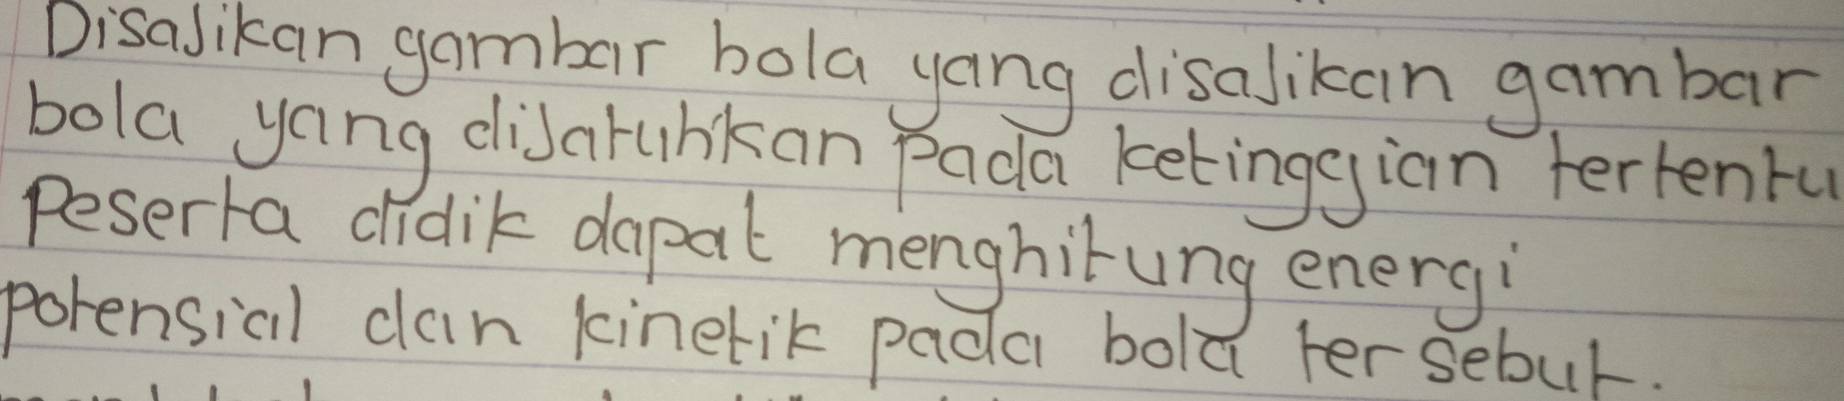 Disajikan gambar bola yang disajikan gambar
bola yang dijatuhkan pada ketinggian tertentu
Peserta didik dapat menghitung energi
potensial dan kinetik pada bola tersebut.